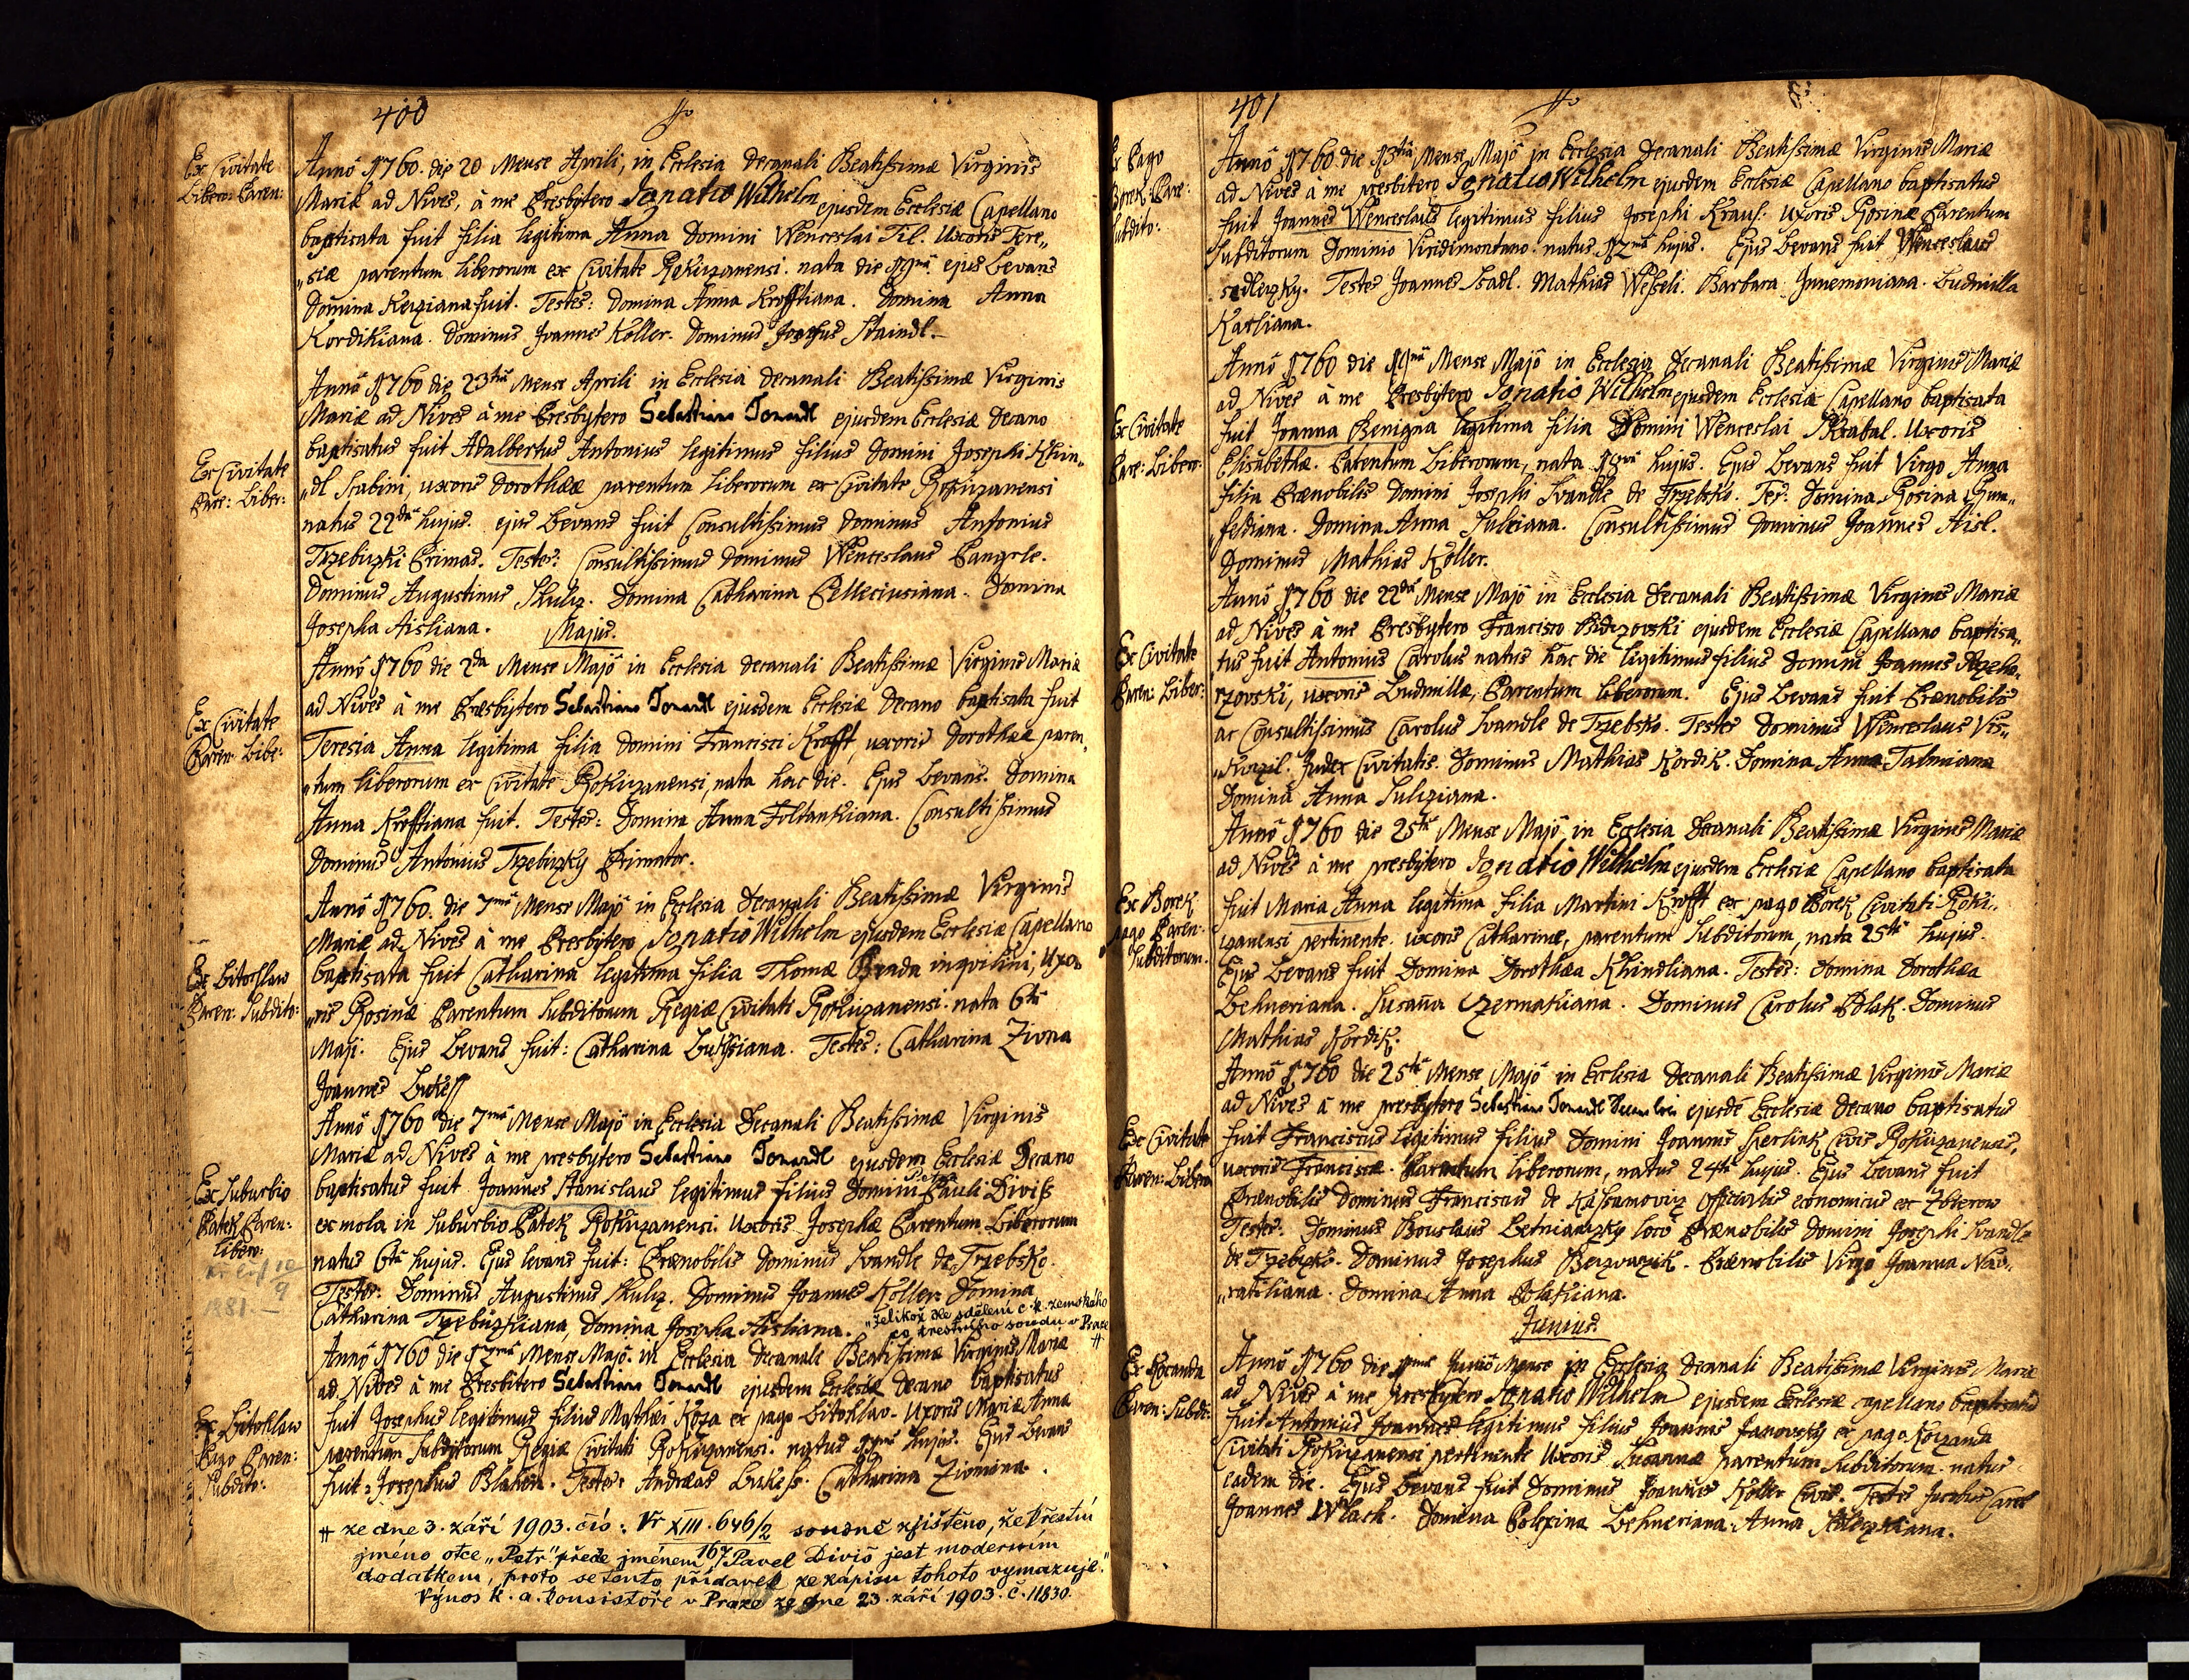 400
Ex Civitate
Libero: Paren:
Anno 1760. die 20 Mense Aprili, in Ecclesia Decanali Beatissimæ Virginis
Mariæ ad Nives, à me Presbytero Ignatio Wilhelm ejusdem Ecclesiæ Capellano
baptisata fuit filia legitima Anna Domini Wenceslai Til. Uxoris Tere„
„siæ parentum liberorum ex Civitate Rokuzanensi. nata die ejus Levans
Domina fuit. Testes: Domina Anna Krofftiana. Domina Anna
Kordikiana. Dominus Joannes Koller. Dominus Staindl.
Ex Civitate
Pare: Liber:
Anno 1760 die 23tia Mense Aprili in Ecclesia Decanali Beatissimæ Virginis
Mariæ ad Nives à me Presbytero Sebastiano Tomandl ejusdem Ecclesiæ Decano
baptisatus fuit Adalbertus Antonius legitimus filius Domini Josephi Khin„
„dl Scabini, uxoris Dorothææ parentum liberorum ex Civitate Rokuzanensi
natus 22da hujus. ejus Levans fuit Consultissimus Dominus Antonius
Trzebizki Primas. Testes: Consultissimus Dominus Wenceslaus
Dominus Augustinus Skulz. Domina Catharina Domina
Josepha Aisliana.
Majus.
Ex Civitate
Paren: Libe:
Anno 1760 die 2da Mense Majo in Ecclesia Decanali Beatissimæ Virginis Mariæ
ad Nives à me Præsbytero Sebastiano Tomandl ejusdem Ecclesiæ Decano baptisata fuit
Teresia Anna legitima filia Domini Francisci Krofft, uxoris Dorothææ paren„
„tum liberorum ex Civitate Rokuzanensi, nata hac die. Ejus Levans. Domina
Anna Krofftiana fuit. Testes: Domina Anna Foltankiana. Consultissimus
Dominus Antonius Trzebizky Primator.
Ex Litohlaw
Paren: Subdito:
Anno 1760. die 7ma Mense Majo in Ecclesia Decanali Beatissimæ Virginis
Mariæ ad Nives à me Presbytero Ignatio Wilhelm ejusdem Ecclesiæ Capellano
baptisata fuit Catharina legitima filia Thomæ inqvilini, Uxo„
„ris Rosinæ Parentum Subditorum Regiæ Civitati Rokuzanensi. nata 6ta
Maji. Ejus Levans fuit: Catharina Testes: Catharina Zivna
Joannes
Ex Suburbio
Patek Paren:
Libero:
12/9
1881.
Anno 1760 die 7ma Mense Majo in Ecclesia Decanali Beatissimæ Virginis
Mariæ ad Nives à me presbytero Sebastiano Tomandl ejusdem Ecclesiæ Decano
baptisatus fuit Joannes Stanislaus legitimus filius Domini Petri Pauli Diviß
ex mola in Suburbio Patek Rokuzanensi. Uxoris Josephæ Parentum Liberorum
natus 6ta hujus. Ejus levans fuit: Prænobilis Dominus Svandle de Trzebsko.
Testes: Dominus Augustinus Skulz. Dominus Joannes Koller. Domina
Catharina Trzebizkiana, Domina Josepha Aisliana. „Jelikož dle sdělení c. k. zemského
co trestního soudu v Praze #
Ex Litohlaw
Pago Paren:
Subdito:
Anno 1760 die 12ma Mense Majo in Ecclesia Decanale Beatissimæ Virginis Mariæ
ad Nives à me Presbitero Sebastiano Tomandl ejusdem Ecclesiæ Decano baptisatus
fuit Josephus legitimus filius Mathæi Koza ex pago Litohlav. Uxoris Mariæ Anna
parentum Subditorum Regiæ Civitati Rokuzanensi. natus hujus. Ejus Levans
fuit: Josephus Testes: Andreas Catharina
# ze dne 3. září 1903. čís: Vr XIII. 646/2 soudně zjištěno, že křestní
167
jméno otce „Petr“ přede jménem Pavel Diviš jest moderním
dodatkem, proto se tento přídavek ze zápisu tohoto vymazuje.“
Výnos k. a. konsistoře v Praze ze dne 23. září 1903. č. 11830.
401
Ex Pago
Borek. Pare:
Subdito:
Anno 1760. die 13tia Mense Majo in Ecclesia Decanali Beatissimæ Virginis Mariæ
ad Nives à me presbitero Ignatio Wilhelm ejusdem Ecclesiæ Capellano baptisatus
fuit Joannes Wenceslaus legitimus filius Josephi Kraus. uxoris Rosinæ Parentum
Subditorum Dominio Viridimontano. natus 12ma hujus. Ejus Levans fuit Wenceslaus
Sedlezky. Testes Joannes Mathias Barbara Ludmilla
Karliana.
Ex Civitate
Pare: Libero:
Anno 1760 die Mense Majo in Ecclesia Decanali Beatissimæ Virginis Mariæ
ad Nives à me Presbytero Ignatio Wilhelm ejusdem Ecclesiæ Capellano baptisata
fuit Joanna Benigna legitima filia Domini Wenceslai Uxoris
Elisabethæ. Parentum Liberorum, nata hujus. Ejus Levans fuit Virgo Anna
filia Prænobilis Domini Josephi Svandle de Trzebsko. Tes: Domina Rosina
Domina Anna Consultissimus Dominus Joannes Aisl.
Dominus Mathias Koller.
Ex Civitate
Paren: Liber:
Anno 1760 die 22da Mense Majo in Ecclesia Decanali Beatissimæ Virginis Mariæ
ad Nives à me Presbytero Francisco ejusdem Ecclesiæ Capellano baptisa„
tus fuit Antonius Carolus natus hac die legitimus filius Domini Joannis
uxoris Ludmillæ, Parentum liberorum. Ejus Levans fuit Prænobilis
ac Consultissimus Carolus Svandle de Trzebsko. Testes Dominus Wenceslaus
Judex Civitatis. Dominus Mathias Kordik. Domina Anna Talmiana
Domina Anna Sulziana.
Ex Borek
pago Paren:
Subditorum.
Anno 1760 die 25ta Mense Majo in Ecclesia Decanali Beatissimæ Virginis Mariæ
ad Nives à me presbytero Ignatio Wilhelm ejusdem Ecclesiæ Capellano baptisata
fuit Maria Anna legitima filia Martini Krofft ex pago Borek Civitati Roki„
„zanensi pertinente. uxoris Catharinæ, parentum Subditorum, nata 25ta hujus.
Ejus Levans fuit Domina Dorothæa Khindliana. Testes: Domina Dorothæa
Lehneriana. Susanna Czermakiana. Dominus Carolus Polak. Dominus
Mathias Kordik.
Ex Civitate
Paren: Libero
Anno 1760 die 25ta Mense Majo in Ecclesia Decanali Beatissimæ Virginis Mariæ
ad Nives à me presbytero Sebastiano Tomandl ejusdē Ecclesiæ Decano baptisatus
fuit Franciscus legitimus filius Domini Joannis Civis Rokuzanensis,
uxoris Franciscæ. Parentum liberorum, natus 24ta hujus. Ejus Levans fuit
Prænobilis Dominus Franciscus de economicus ex Zbirow
Testes: Dominus loco Prænobilis Domini Josephi Svandle
de Trzebsko. Dominus Josephus Prænobilis Virgo Joanna
Domina Anna Polakiana.
Junius.
Ex Kocanda
Paren: Subdi:
Anno 1760 die Junio Mense in Ecclesia Decanali Beatissimæ Virginis Mariæ
ad Nives à me presbytero Ignatio Wilhelm ejusdem Ecclesiæ capellano baptisatus
fuit Antonius Joannes legitimus filius Joannis Janovsky ex pago Kozanda
Civitati Rokuzanensi pertinente Uxoris Susannæ parentum Subditorum. natus
eadem die. Ejus Levans fuit Dominus Joannes Koller Civis. Testes
Joannes Wlach. Domina Polexina Lehneriana. Anna